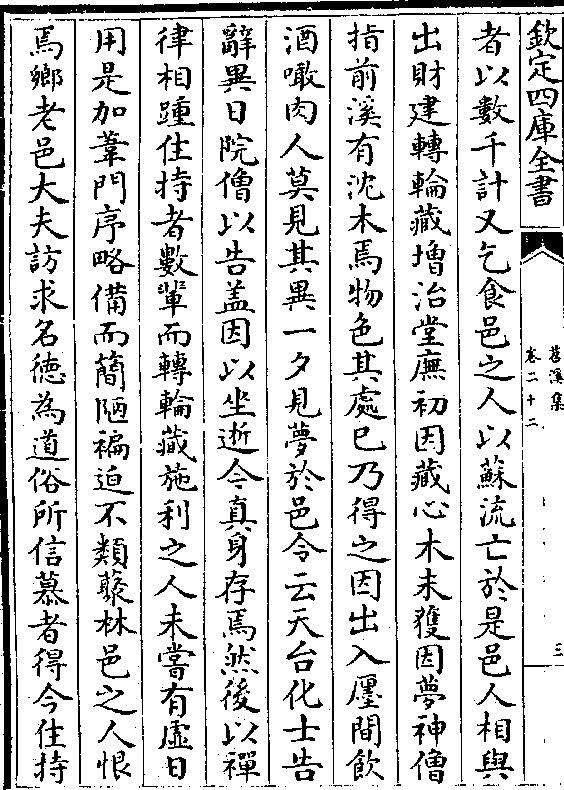 欽定四庫全書
苕溪集
卷二十二
三
者以數千計又乞食邑之人以蘇流亡於是邑人相與
出財建轉輪藏増治堂廡初因藏心木未獲因夢神僧
指前溪有沈木焉物色其處已乃得之因出入㕓間飲
酒噉肉人莫見其異一夕見夢於邑令云天台化士告
辭異日院僧以告盖因以坐逝今真身存焉然後以禪
律相踵住持者數輩而轉輪藏施利之人未嘗有虛日
用是加葺門序略備而簡陋褊迫不類藂林邑之人恨
焉鄉老邑大夫訪求名徳為道俗所信慕者得今住持